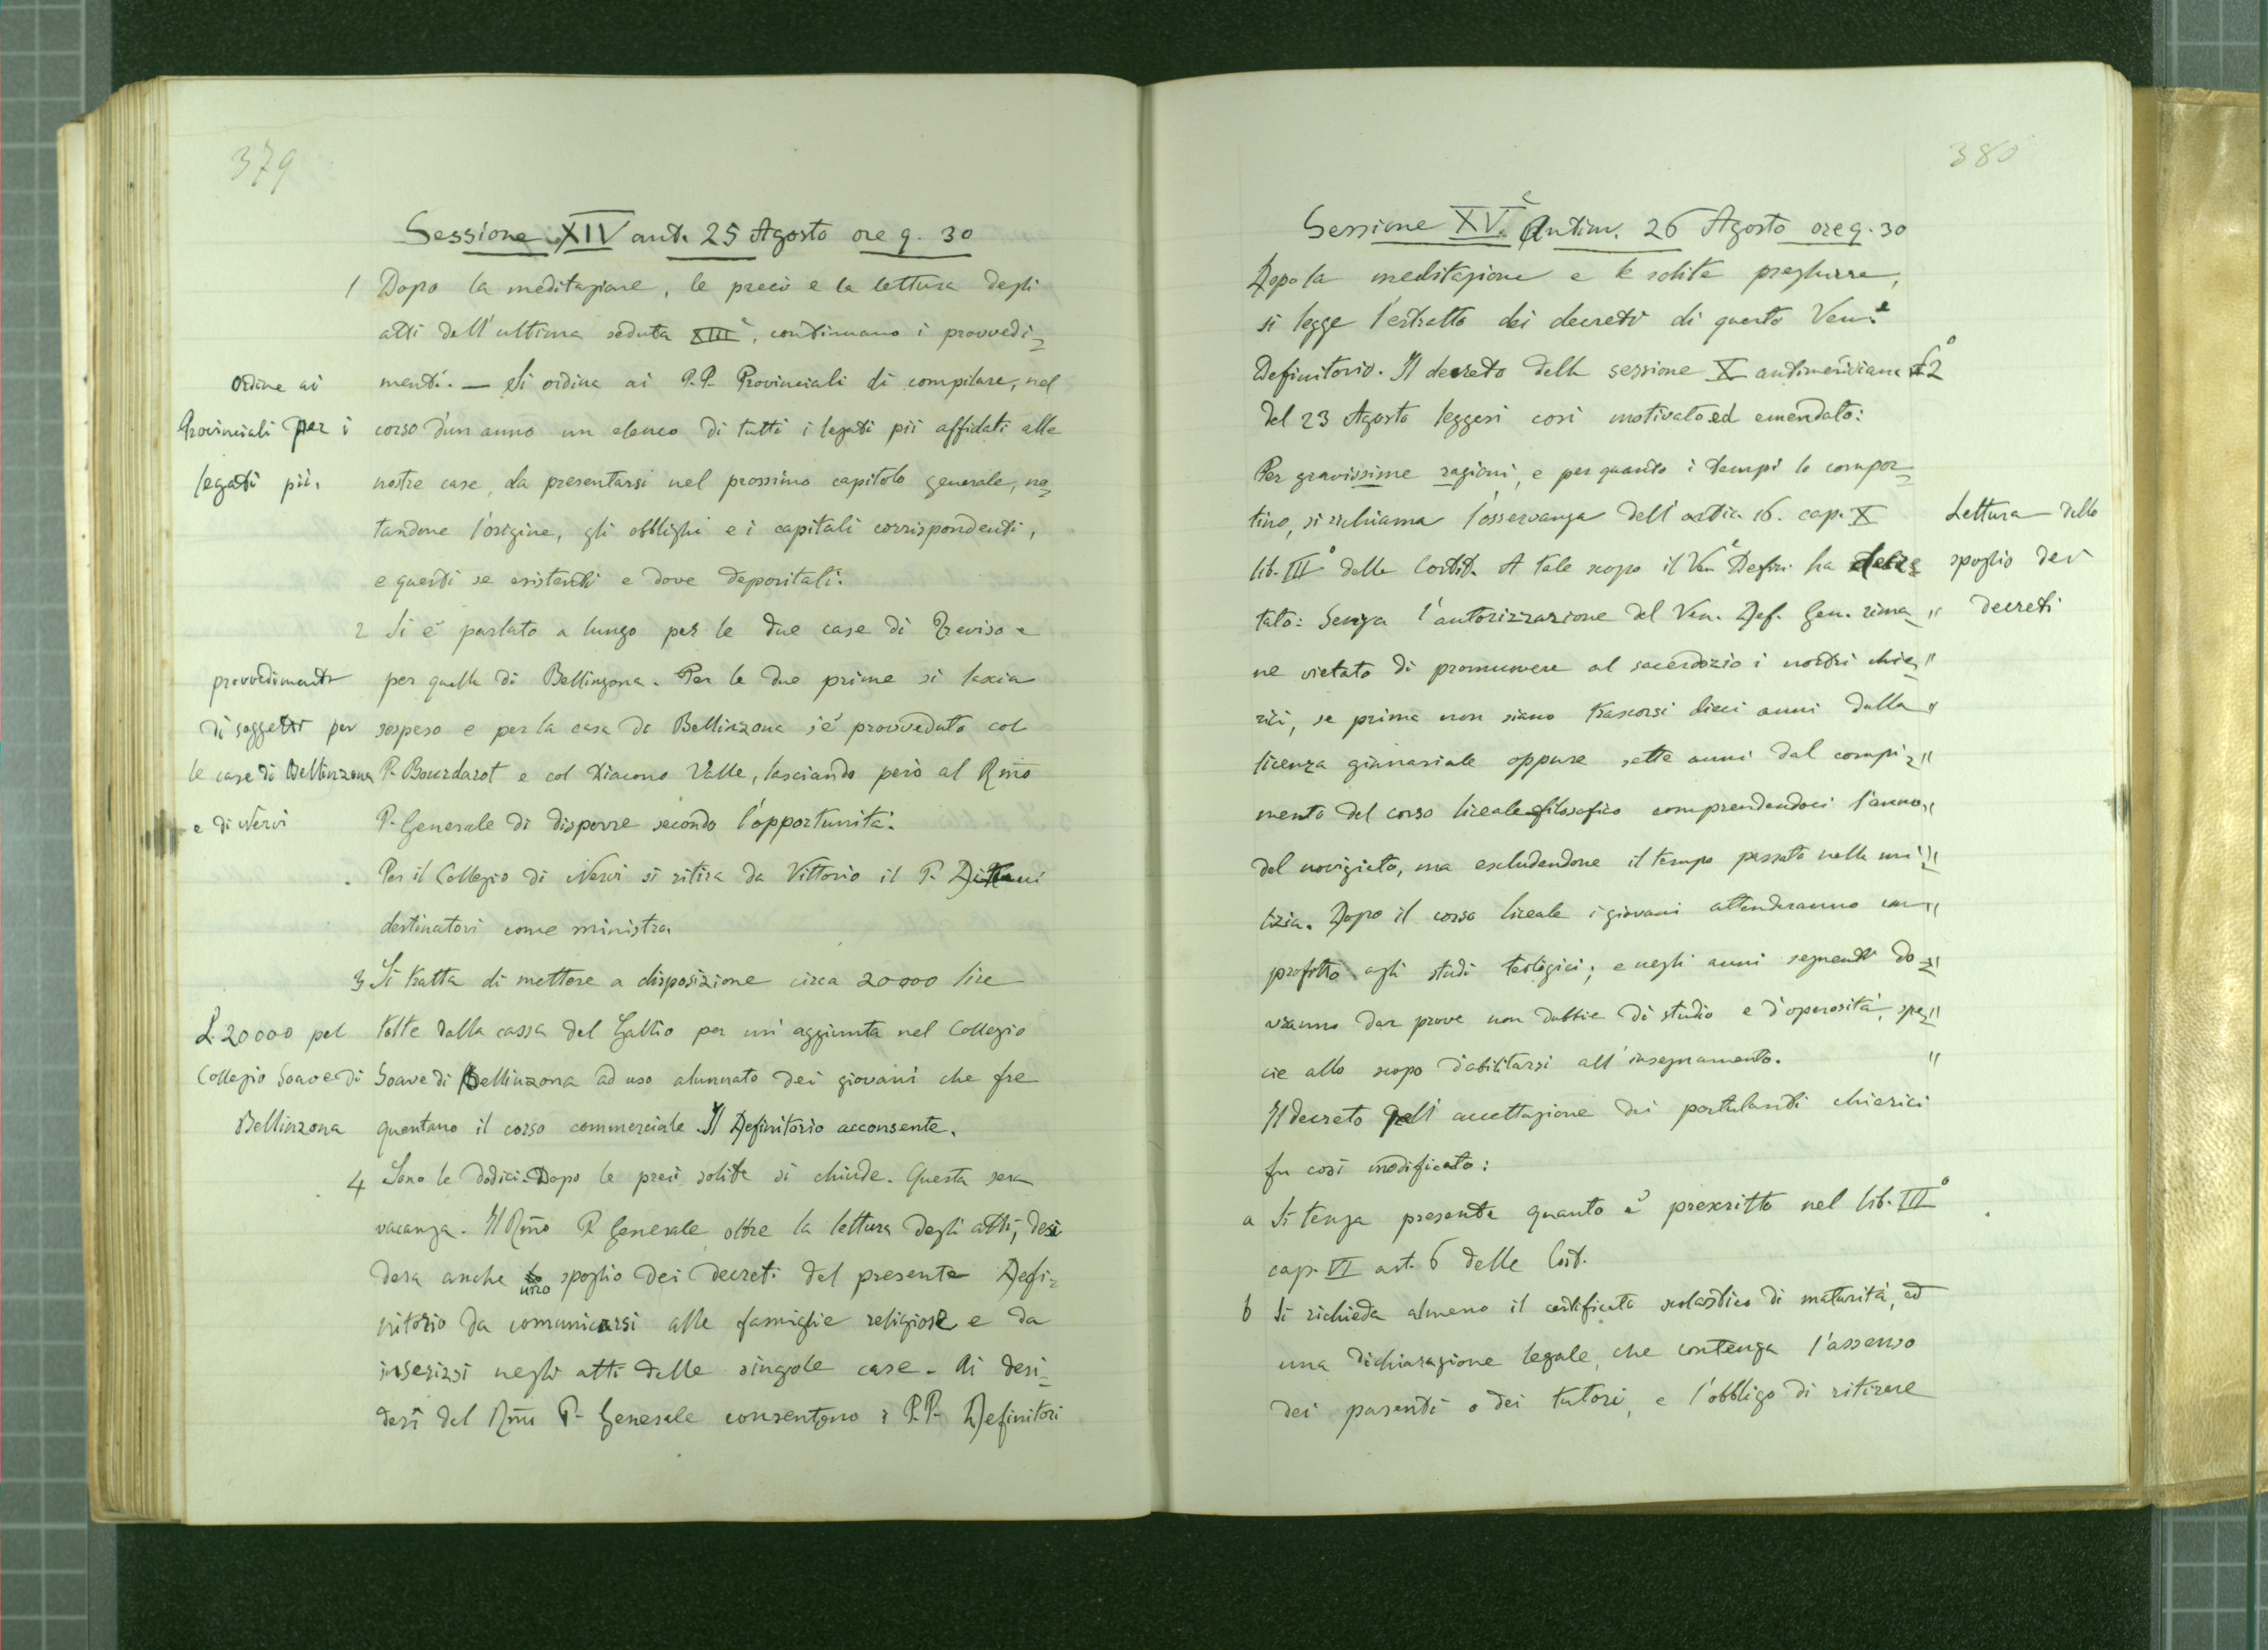 379
Sessione XIV ant. 25 Agosto ore 9.30
1 Dopo la meditazione, le preci e la lettura degli
atti dell'ultima seduta XIIIª, continuano i provvedi=
menti. — Si ordina ai P.P. Provinciali di compilare, nel
corso d'un anno un elenco di tutti i legati pii affidati alle
nostre case, da presentarsi nel prossimo capitolo generale, no=
tandone l'origine, gli obblighi e i capitali corrispondenti,
e questi se esistenti e dove depositati.
Ordine ai
Provinciali per i
legati pii.
2 Si è parlato a lungo per le due case di Treviso e
per quelle di Bellinzona. Per le due prime si lascia
sospeso e per la casa di Bellinzona s'è provveduto col
P. Bourdarot e col Diacono Valle, lasciando però al Rm̃o
P. Generale di disporre secondo l'opportunità.
Per il Collegio di Nervi si ritira da Vittorio il P.
destinatovi come ministro.
provvedimenti
di soggetti per
le case di Bellinzona
e di Nervi
3 Si tratta di mettere a disposizione circa 20000 lire
tolte dalla cassa del Gallio per un'aggiunta nel Collegio
Soave di Bellinzona ad uso alunnato dei giovani che fre
quentano il corso commerciale. Il Definitorio acconsente.
£. 20000 pel
Collegio Soave di
Bellinzona
4 Sono le dodici. Dopo le preci solite si chiude. Questa sera
vacanza. Il Rm̃o P. Generale, oltre la lettura degli atti, desi
dera anche uno spoglio dei decreti del presente Defi=
nitorio da comunicarsi alle famiglie religiose e da
inserirsi negli atti delle singole case. Ai desi=
deri del Rm̃o P. Generale consentono i P.P. Definitori
380
Sessione XVª Antim. 26 Agosto ore 9.30
Dopo la meditazione e le solite preghiere,
si legge l'estratto dei decreti di questo Ven.e
Definitorio. Il decreto della sessione X antimeridiana 2°
del 23 Agosto leggesi così motivato ed emendato:
Per gravissime ragioni, e per quanto i tempi lo compor=
tino, si richiama l'osservanza dell'artic. 16. cap. X
lib. III° delle Costit. A tale scopo il Ven.e Defin. ha decre=
tato: Senza l'autorizzazione del Ven. Def. Gen. rima= "
ne vietato di promuovere al sacerdozio i nostri chie= "
rici, se prima non siano trascorsi dieci anni dalla "
licenza ginnasiale oppure sette anni dal compi= "
mento del corso liceale-filosofico comprendendoci l'anno "
del noviziato, ma escludendone il tempo passato nella mi= "
lizia. Dopo il corso liceale i giovani attenderanno con "
profitto agli studi teologici; e negli anni seguenti do= "
vranno dar prove non dubbie di studio e d'operosità, spe= "
cie allo scopo d'abilitarsi all'insegnamento. "
Lettura dello
spoglio dei
decreti
Il decreto dell'accettazione dei postulanti chierici
fu così modificato:
a Si tenga presente quanto è prescritto nel lib. III°
cap. VI art. 6 delle Cost.
b Si richieda almeno il certificato scolastico di maturità, ed
una dichiarazione legale, che contenga l'assenso
dei parenti o dei tutori, e l'obbligo di ritirare